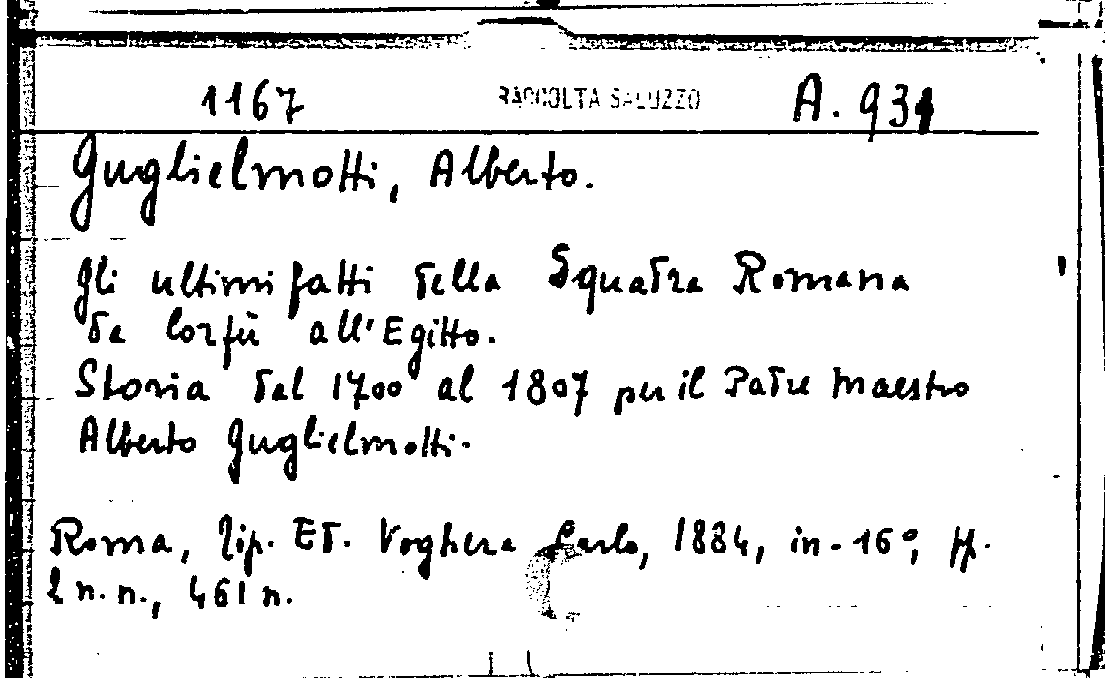 1167 RACCOLTA SALUZZO A. 931
Guglielmotti, Alberto.
Gli ultimi fatti della Squadra Romana
da Corfù all'Egitto.
Storia dal 1700 al 1807 per il Padre Maestro
Alberto Guglielmotti.
Roma, Tip. Ed. Voghera Carlo, 1884, in-16°, pp.
2 n.n., 461 n.